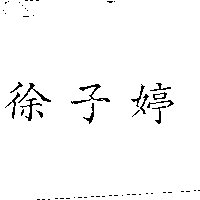 徐子婷